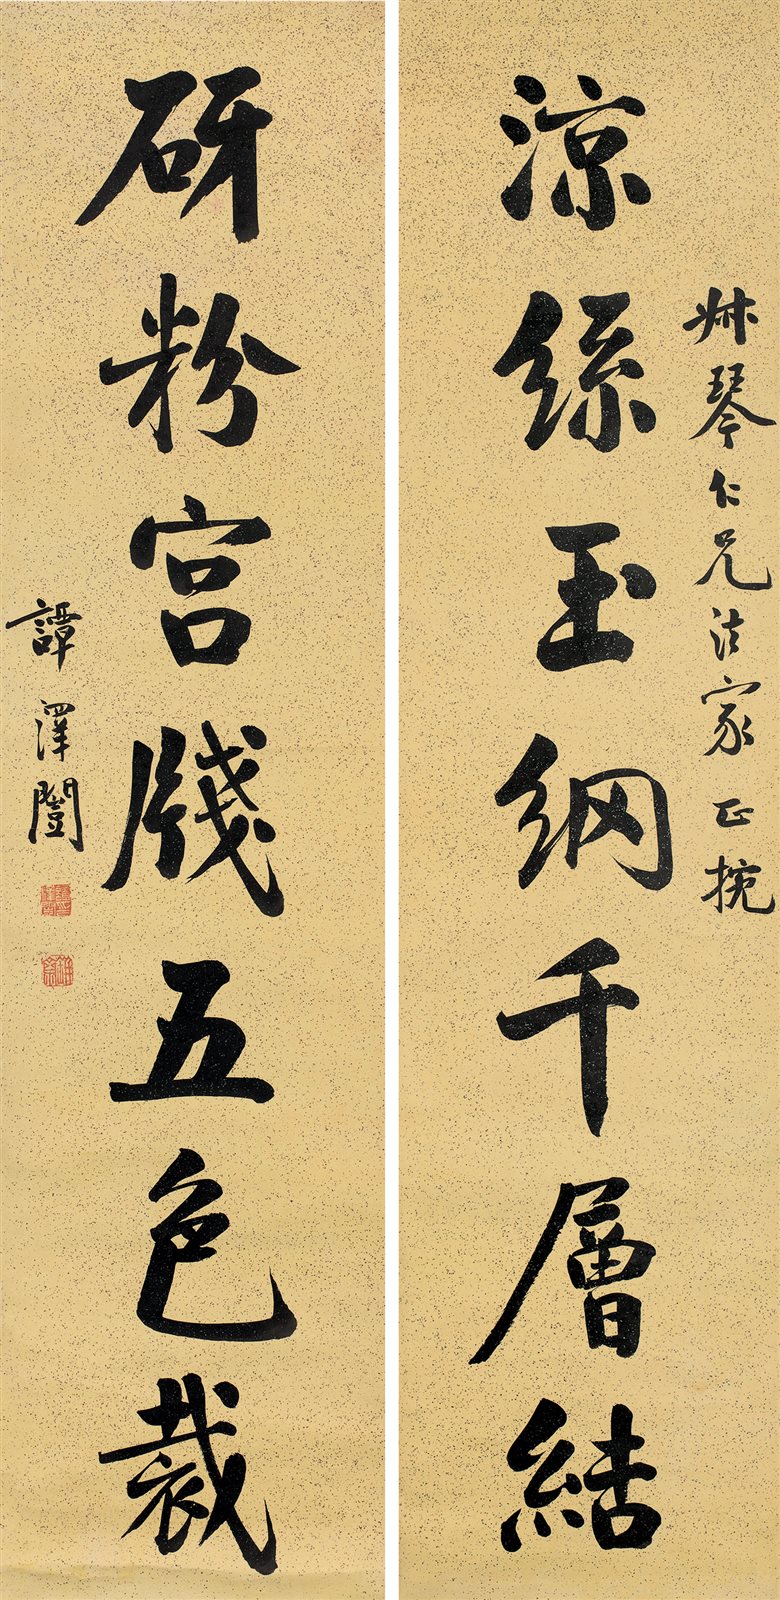 叔琴仁兄法家正捥
涼絲玉網千層結
砑粉宮牋五色裁
譚澤闓